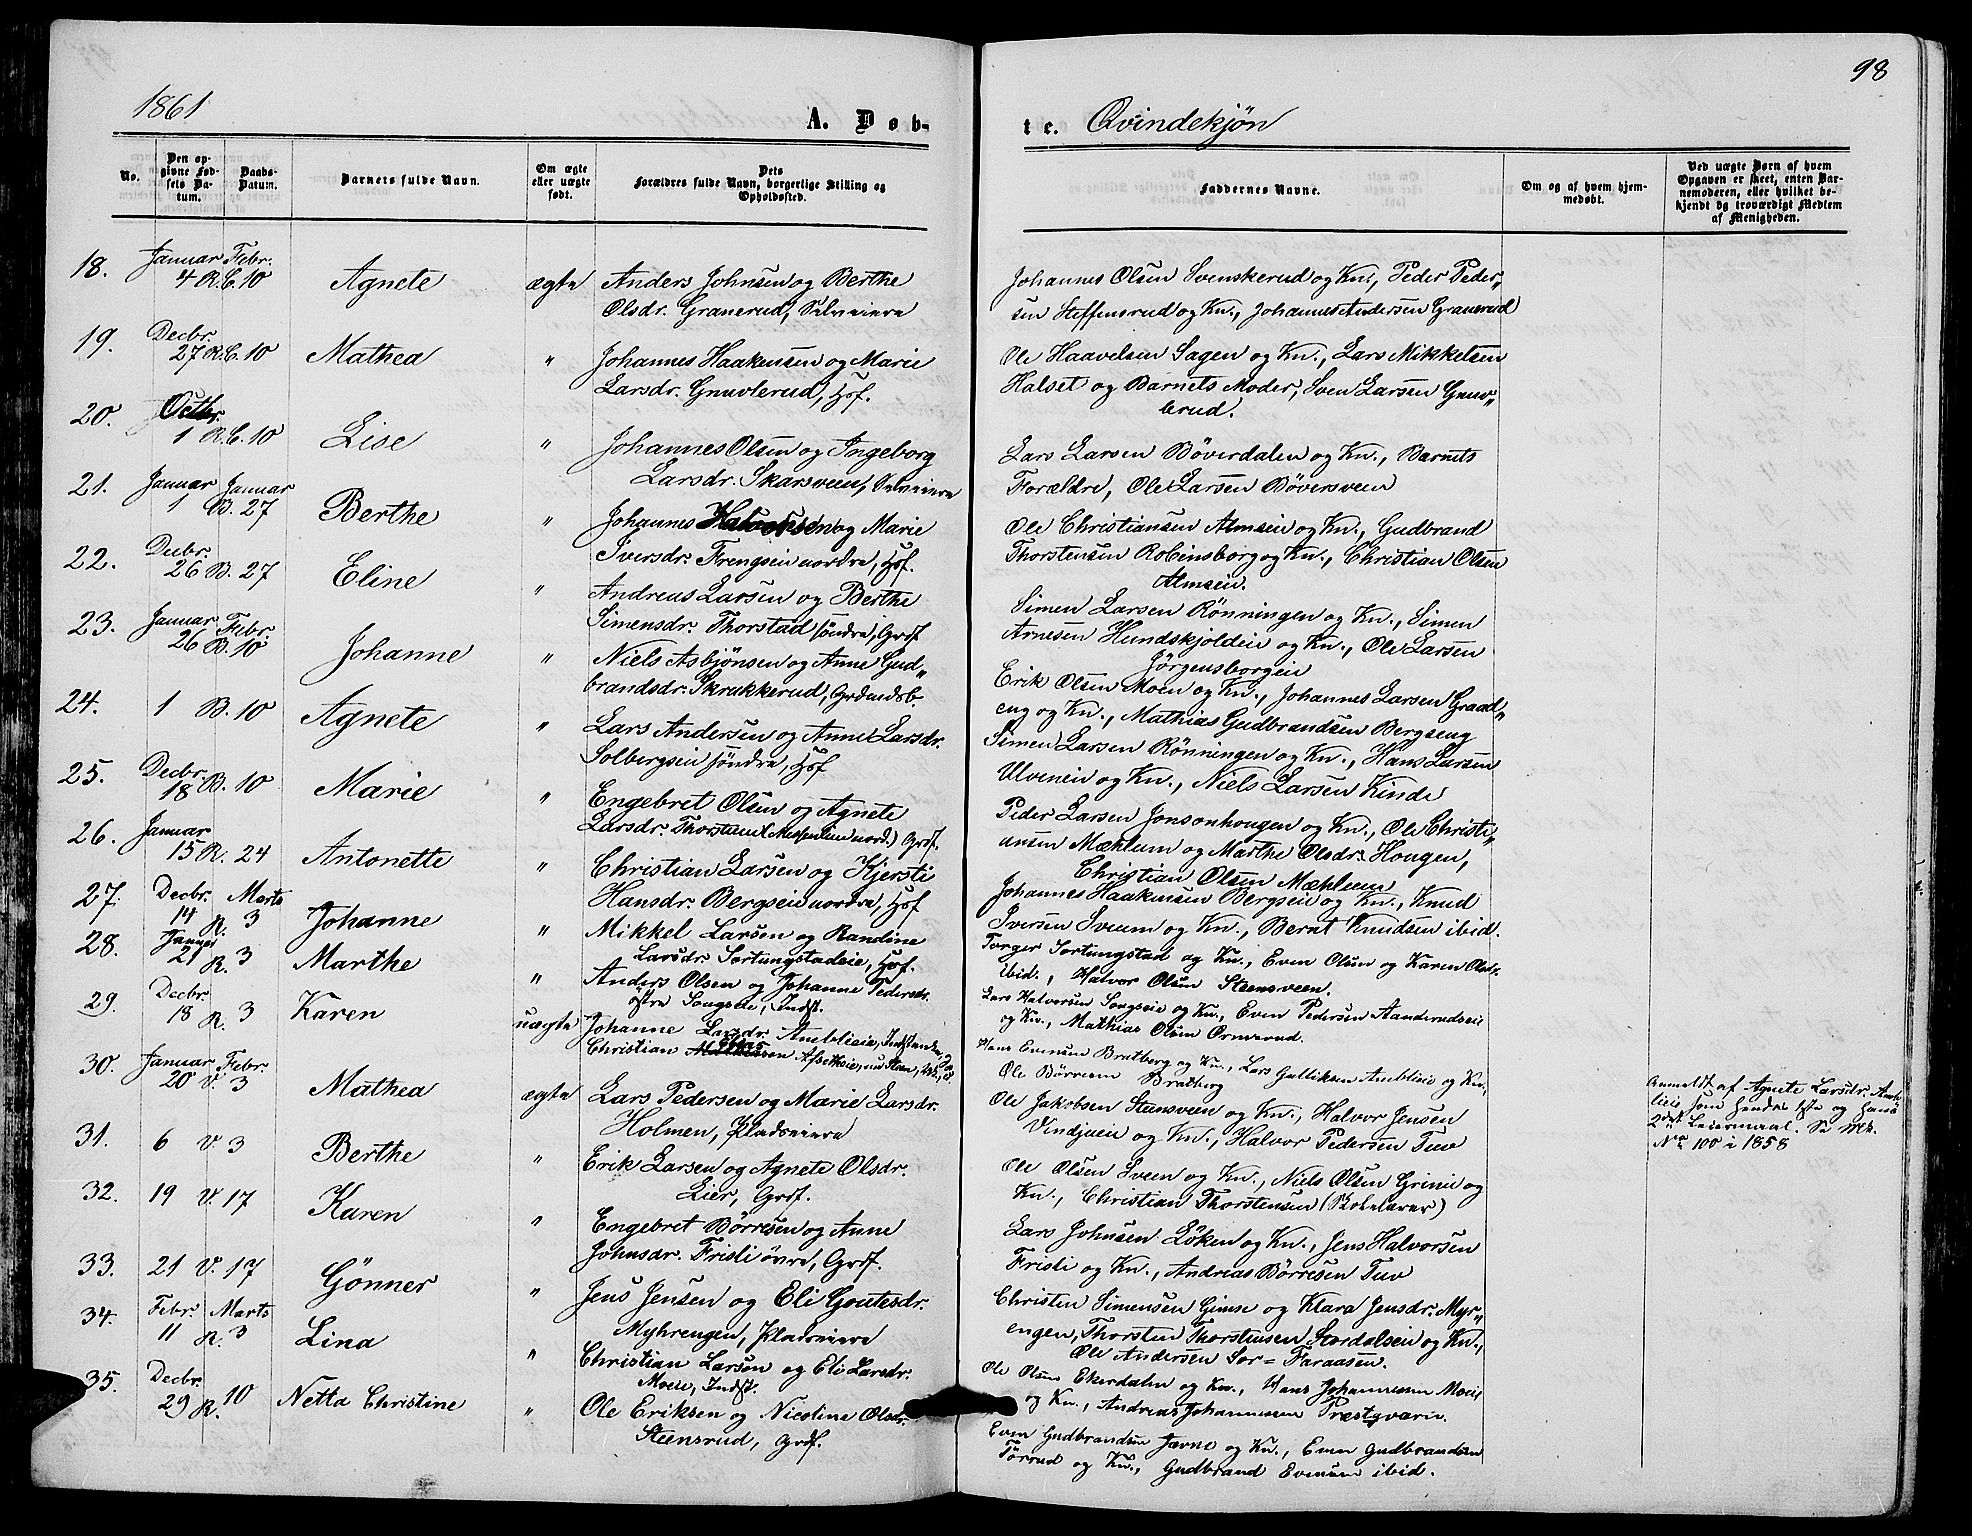 1861
A. Døb-
No.
Den op-
givne Fød-
sels Da-
tum.
Daabs-
Datum.
Barnets fulde Navn.
Om ægte
eller uægte
født.
Dets
Forældres fulde Navn, borgerlige Stilling og
Opholdssted.
18. Januar 4 Febr. R.C. 10 Agnete ægte Anders Johnsen og Berthe
Olsdr. Granerud, Selveiere
19. Decbr. 27 R.C. 10 Mathea " Johannes Haakensen og Marie
Larsdr. Gnuvlerud, Hsf.
20. Octbr. 1 R.C. 10 Lise " Johannes Olsen og Ingeborg
Larsdr. Skarsveen, Selveiere
21. Januar 1 Januar B. 27 Berthe " Johannes Halvorsen og Marie
Iversdr. Frengseie nordre, Hsf.
22. Decbr. 26 B. 27 Eline " Andreas Larsen og Berthe
Simensdr. Thorstad søndre, Grdf
23. Januar 26 Febr. B. 10 Johanne " Niels Asbjönsen og Anne Gud„
brandsdr. Skrukkerud, Grdmdsb.
24. 1 B. 10 Agnete " Lars Andersen og Anne Larsdr.
Solbergseie søndre, Hsf
25. Decbr. 18 B. 10 Marie " Engebret Olsen og Agnete
Larsdr. Grdf.
26. Januar 15 R. 24 Antonette " Christian Larsen og Kjersti
Hansdr. Bergseie nordre, Hsf
27. Decbr. 14 Marts R. 3 Johanne " Mikkel Larsen og Randine
Larsdr. Sortungstadeie, Hsf.
28. Januar 21 R. 3 Marthe " Anders Olsen og Johanne Pedersdr.
østre Songseie, Indst.
29. Decbr. 18 R. 3 Karen uægte Johanne Larsdr. Amblieie,
Christian
30. Januar 20 Febr. V. 3 Mathea ægte Lars Pedersen og Marie Larsdr.
Holmen, Pladseiere
31. 6 V. 3 Berthe " Erik Larsen og Agnete Olsdr.
Lier, Grdf.
32. 19 V. 17 Karen " Engebret Börresen og Anne
Johnsdr. Fristi övre, Grdf.
33. 21 V. 17 Gönner " Jens Jensen og Eli Goutesdr.
Myhrengen, Pladseiere
34. Febr. 11 Marts R. 3 Lina " Christian Larsen og Eli Larsdr.
Moeie, Indst.
35. Decbr. 29 R. 10 Netta Christine " Ole Eriksen og Nicoline Olsdr.
Steensrud, Grdf.
98
te. Qvindekjøn
Faddernes Navne.
Om og af hvem hjem-
medøbt.
Ved uægte Børn af hvem
Opgaven er skeet, enten Bar-
nemoderen, eller hvilket be-
kjendt og troværdigt Medlem
af Menigheden.
Johannes Olsen Svenskerud og Kn., Peder Peder„
sen Steffensrud og Kn., Johannes Andersen Granerud
Ole Haavelsen Sagen og Kn., Lars Mikkelsen
Halset og Barnets Moder, Sven Larsen Gnuv„
lerud.
Lars Larsen Böverdalen og Kn., Barnets
Forældre, Ole Larsen Böversveen
Ole Christiansen Almseie og Kn., Gudbrand
Thorstensen Robinsborg og Kn., Christian Olsen
Almseie.
Simen Larsen Rönningen og Kn., Simen
Arnesen Hundskjoldeie og Kn., Ole Larsen
Jörgensborgeie
Erik Olsen Moen og Kn., Johannes Larsen Graad„
eng og Kn., Mathias Gudbrandsen Bergseng
Simen Larsen Rönningen og Kn., Hans Larsen
Ulveneie og Kn., Niels Larsen Kinde
Peder Larsen Jonsonhougen og Kn., Ole Christi„
ansen Mæhlum og Marthe Olsdr. Hougen,
Christian Olsen Mæhlum
Johannes Haakensen Bergseie og Kn., Knud
Iversen Sveum og Kn., Bernt Knudsen ibid.
Torger Sortungstad og Kn., Even Olsen og Karen Olsdr.
ibid., Halvor Olsen Steensveen.
Lars Halvorsen Songseie og Kn., Even Pedersen Aanderudseie
og Kn., Mathias Olsen Ormerud.
Hans Evensen Bratberg og Kn., Lars Gulliksen Amblieie og Kn.,
Ole Börresen Bratberg
Ole Jakobsen Steensveen og Kn., Halvor Jensen
Vindjueie og Kn., Halvor Pedersen Tuv
Ole Olsen Sveen og Kn., Niels Olsen Grinie og
Kn., Christian Thorstensen
Lars Johnsen Löken og Kn., Jens Halvorsen
Fristi og Kn., Andreas Börresen Tuv
Christen Simensen Gimse og Klara Jensdr. Myr„
engen, Thorsten Thorstensen Stordalseie og Kn.,
Ole Andersen Sor= Faraasen.
Ole Olsen Ekerdalen og Kn., Hans Johannesen Moeie
og Kn., Andreas Johannessen Præstqværn.
Even Gudbrandsen Jevne og Kn., Even Gudbrandsen
Törrud og Kn., Gudbrand Evensen ibid.
Anmeldt af Agnete Larsdr. Amb
lieie som hendes 1ste og hans
2det Leiermaal. Se Mk.
No 100 i 1858